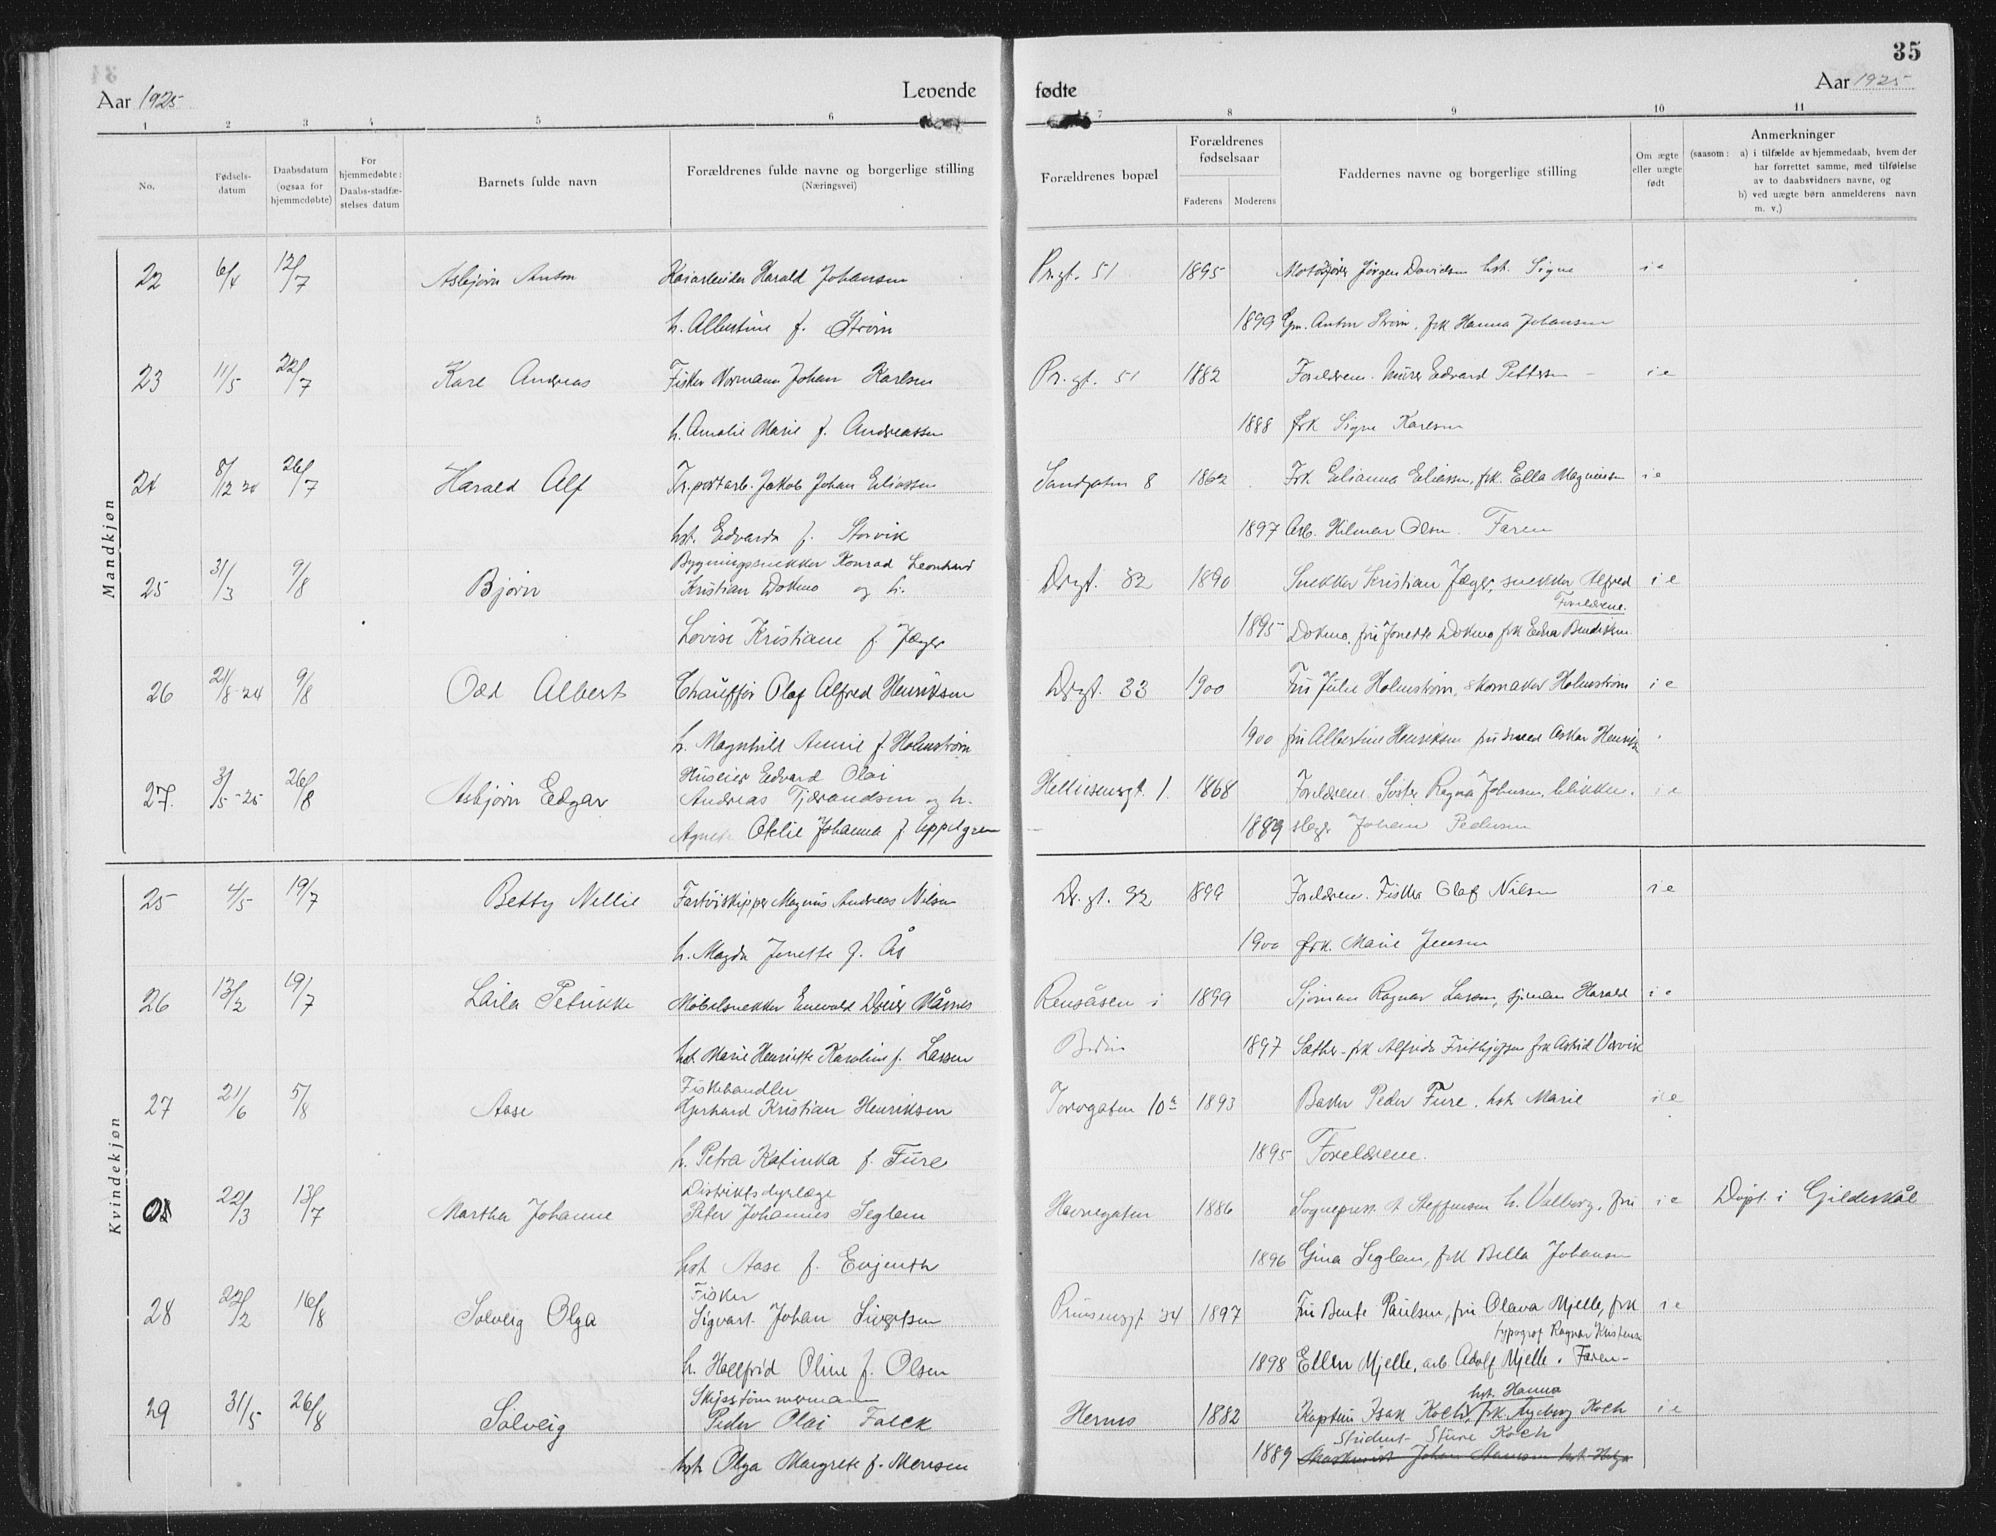 Aar 1925
Levende
1 2 3 4 5 6
No.
Fødsels-
datum
Daabsdatum
(ogsaa for
hjemmedøbte)
For
hjemmedøbte:
Daabs-stadfæ-
stelses datum
Barnets fulde navn
Forældrenes fulde navne og borgerlige stilling
(Næringsvei)
Mandkjøn
22 6/4 12/7 Asbjørn Anton Kaiarbeider Harald Johansen
h. Albertine f. Strøm
23 11/5 22/7 Kare Andreas Fisker Normann Johan Karlsen
h. Amalie Marie f. Andreassen
24 8/12 24 26/7 Harald Alf Tr.portarb. Jakob Johan Eliassen
hst. Edvarda f. Storvik
25 31/3 9/8 Bjørn Bygningssnekker Konrad Leonhard
Kristian Dokmo og h.
Lovise Kristiane f. Jæger
26 21/8-24 9/8 Odd Albert Chauffør Olaf Alfred Henriksen
h. Magnhild Annie f. Holmstrøm
27. 3/5-25 26/8 Asbjørn Edgar Huseier Edvard Olai
Andreas Tjærandsen og h.
Agnete Otelie Johanna f. Eppelgren
Kvindekjøn
25 4/5 19/7 Betty Nellie Fartøiskipper Magnus Andreas Nilsen
h. Magda Jenette f. Ås
26 13/2 19/7 Laila Petrikke Møbelsnekker Enevold Dreier Råsnes
hst. Marie Henriette Karoline f. Larsen
27 21/6 5/8 Aase Fiskehandler
Gjerhard Kristian Henriksen
h. Petra Katinka f. Fure
22/3 13/7 Martha Johanne Distriktsdyrlæge
Peter Johannes Seglem
hst. Aase f. Evjenth
28 22/2 16/8 Solveig Olga Fisker
Sigvart Johan Sivertsen
h. Hallfrid Oline f. Olsen
29 31/5 26/8 Solveig Skipstømmermann
Peder Olai Falck
hst. Olga Margrete f. Mensen
35
fødte
Aar 1925
7 8 9 10 11
Forældrenes bopæl
Forældrenes
fødselsaar
Faderens Moderens
Faddernes navne og borgerlige stilling
Om ægte
eller uægte
født
Anmerkninger
(saasom: a) i tilfælde av hjemmedaab, hvem der
har forrettet samme, med tilføielse
av to daabsvidners navne, og
b) ved uægte børn anmelderens navn
m. v.)
Pr.gt. 51 1895 Motorfører Jørgen Davidsen hst. Signe i e
1899 Gm. Anton Strøm. frk Hanna Johansen
Pr.gt. 51 1882 Foreldrene. Murer Edvard Pettersen - i e
1888 Frk Signe Karlsen
Sandgaten 8 1862 Frk Elianna Eliassen, frk. Ella Magnussen i e
1897 Arb. Hilmar Olsen. Faren
Drgt. 32 1890 Snekker Kristian Jæger, snekker Alfred i e
Foreldrene.
1895 Dokmo, fru Jonette Dokmo frk Edna Bendiksen
Drgt. 33 1900 Fru Julie Holmstrøm, skomaker Holmstrøm i e
1900 fru Albertine Henriksen Oskar Henriks
Hellesensgt. 1. 1868 Foreldrene. Søster Ragna Johnsen, blikken- i e
1889 slager Johan Pedersen
Dr. gt. 92 1899 Foreldrene. Fisker Olaf Nilsen i e
1900 Frk. Marie Jensen
Rensåsen i 1899 Sjømann Ragnar Larsen, sjømann Harald i e
Bodin 1897 Sæther - frk Alfrida Frithjofsen frk Astrid Varvik
Torvgaten 10a 1893 Baker Peder Fure. hst. Marie i e
1895 Foreldrene.
Havnegaten 1886 Sogneprest Steffensen h. Valborg, fru i e Døpt i Gildeskål
1896 Gina Seglem, frk Bella Johansen
Prinsensgt 34 1897 Fru Bente Paulsen, fru Olava Mjelle, frk i e
typograf Ragnar Kristensen
1898 Ellen Mjelle, arb. Adolf Mjelle. Faren-
hst. Hanna
Hernes 1882 Kaptein Isak Koch, frk. Ingeborg Koch i e
Student Sture Koch
1889 Maskinist Johan Hansen hst. Helga